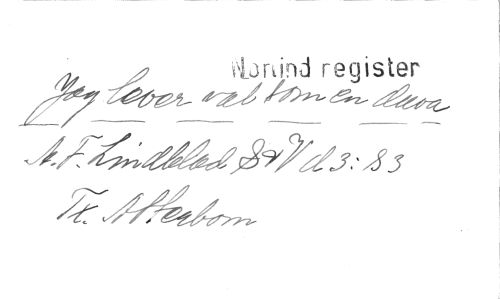 Nonind register
Jag lever väl som en duva
A. F. Lindblad S&V d 3: 83
Tx. Atterbom